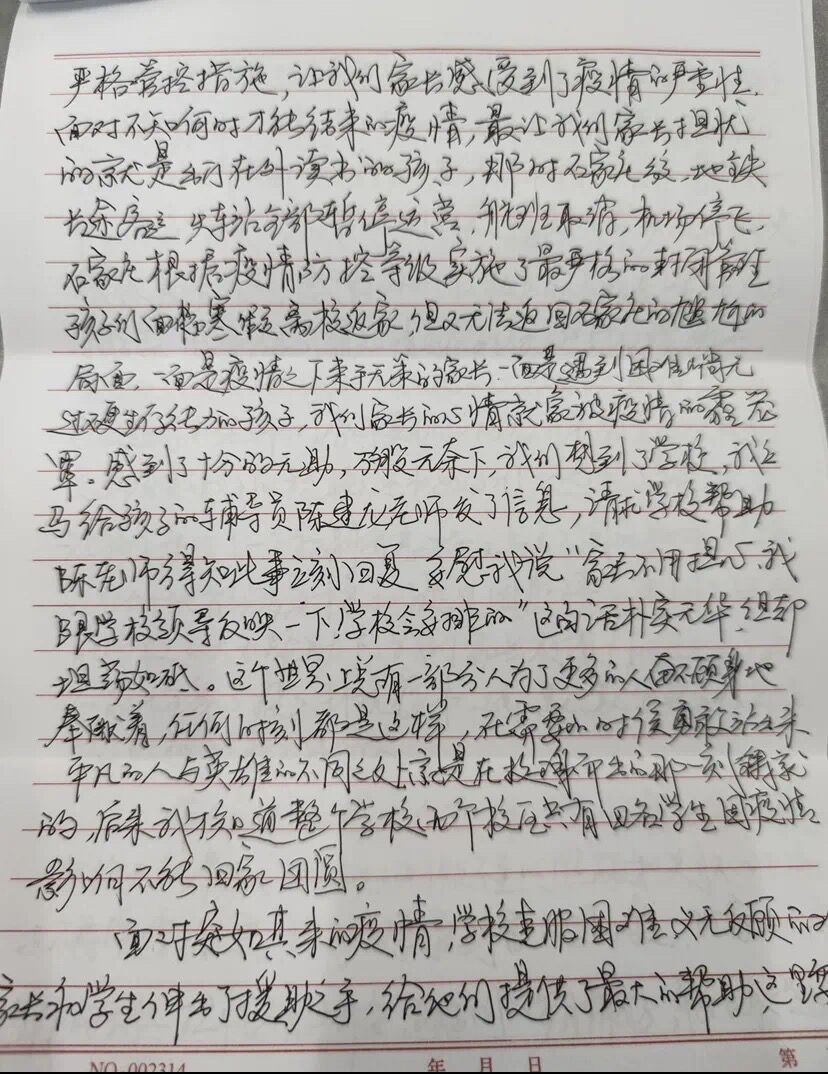 严格管控措施，让我们家长感受到了疫情的严重性.
面对不知何时才能结束的疫情，最让我们家长担忧
的就是出门在外读书的孩子，那时石家庄 地铁
长途客运 火车站全部暂停运营，航班取消，机场停飞，
石家庄根据疫情防控等级实施了最严格的封闭管理
孩子们面临寒假离校返家，但又无法返回石家庄的尴尬的
局面，一面是疫情之下束手无策的家长，一面是遇到困难
过硬生存能力的孩子，我们家长的心情就象被疫情的雾霾笼
罩。感到了十分的无助，万般无奈下，我们想到了学校，我立
马给孩子的辅导员陈建龙老师发了信息，请求学校帮助
陈老师得知此事立刻回复 安慰我说“家长不用担心，我
跟学校领导反映一下！学校会安排的”这句话朴实无华，但却
坦荡如砥。这个世界上总有一部分人为了更多的人奋不顾身地
奉献着，任何时刻都是这样，在需要的时候勇敢站出来
平凡的人与英雄的不同之处就是在挺身而出的那一刻
的，后来我校知道整个学校 校区共有四名学生因疫情
影响不能回家团圆。
面对突如其来的疫情，学校克服困难义无反顾的对
家长和学生伸出了援助之手，给他们提供了最大的帮助，这里
NO. 002314 年 月 日 第